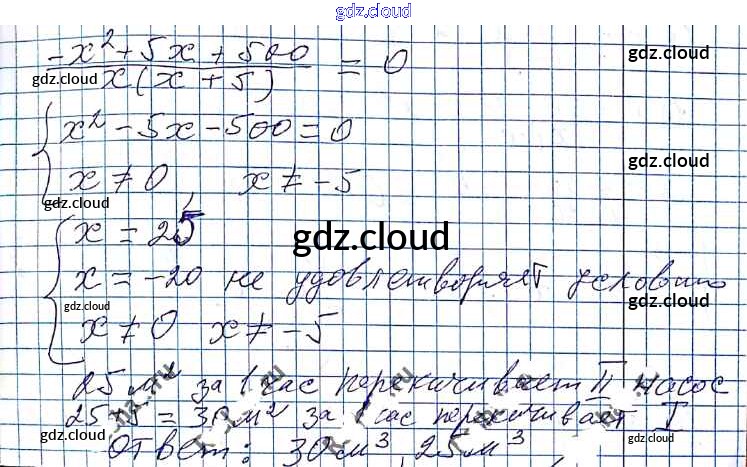 gdz.cloud
(-x² + 5x + 500) / (x(x + 5)) = 0
gdz.cloud
gdz.cloud
x² - 5x - 500 = 0
gdz.cloud
x ≠ 0, x ≠ -5
x = 25
gdz.cloud
x = -20 не удовлетворяет условию
gdz.cloud
gdz.cloud
x ≠ 0 x ≠ -5
25 м³ за 1 час перекачивает II насос
25+5 = 30 м² за 1 час перекачивает I
gdz.cloud
gdz.cloud
Ответ: 30 м³, 25 м³